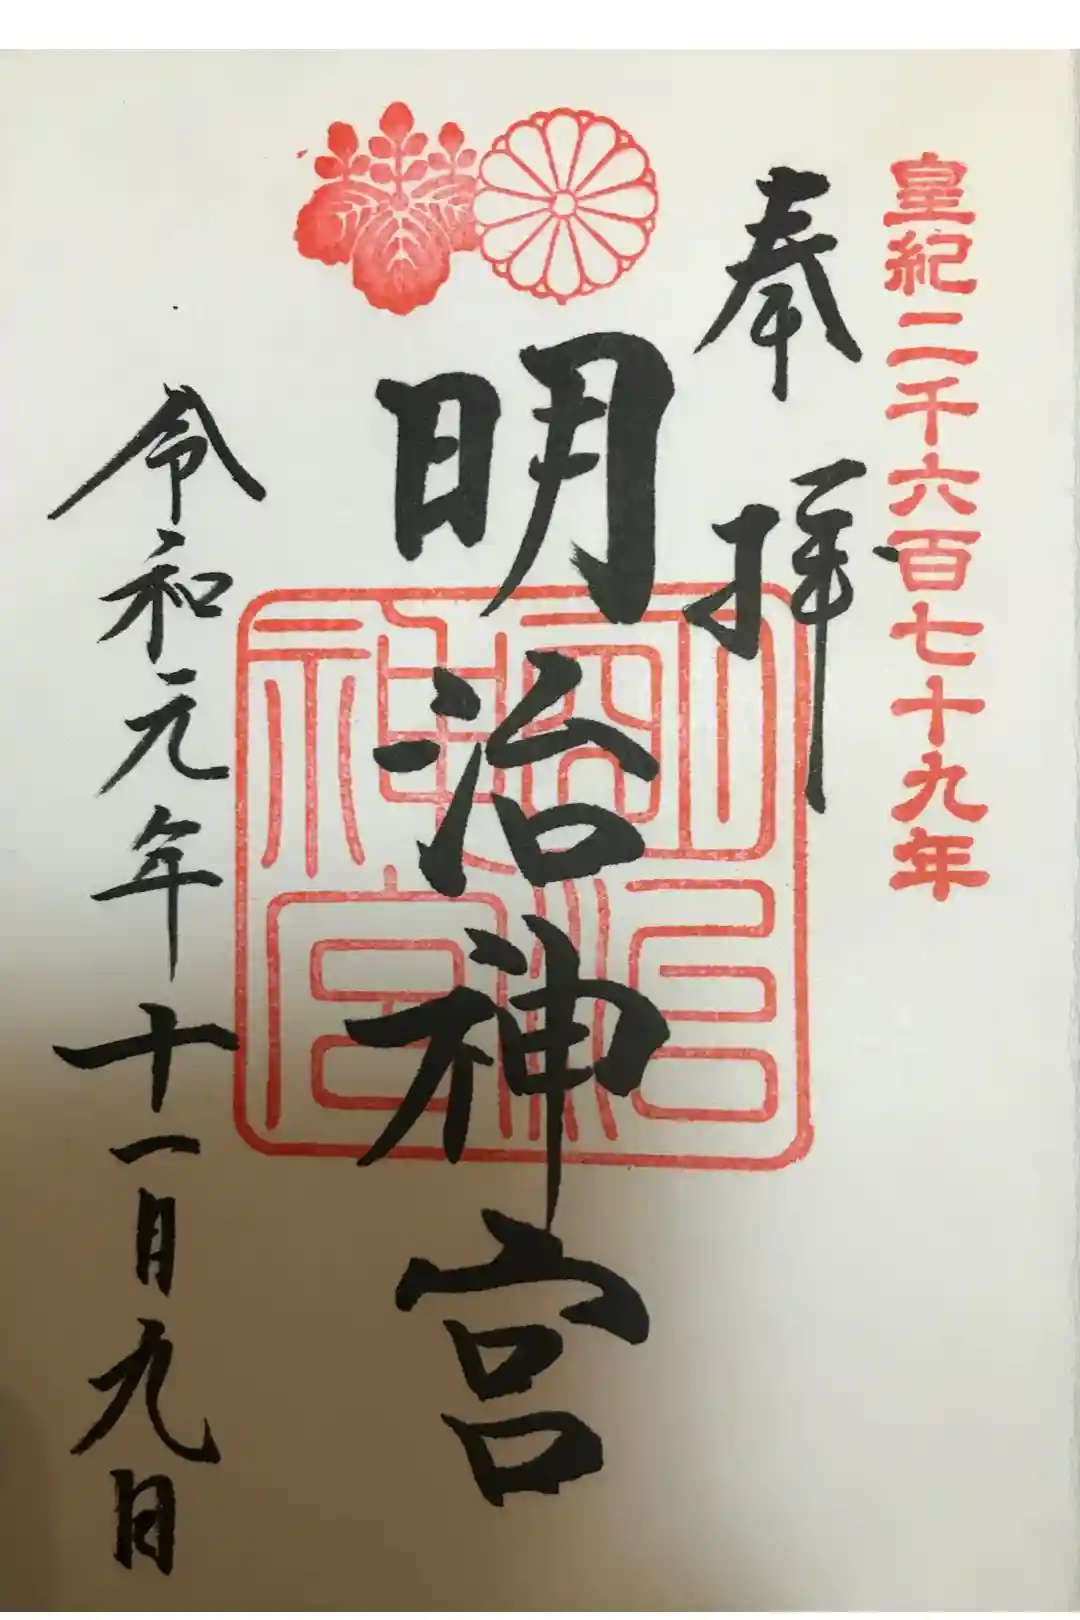 皇紀二千六百七十九年
奉拝
明治神宮
明治神宮
令和元年十一月九日